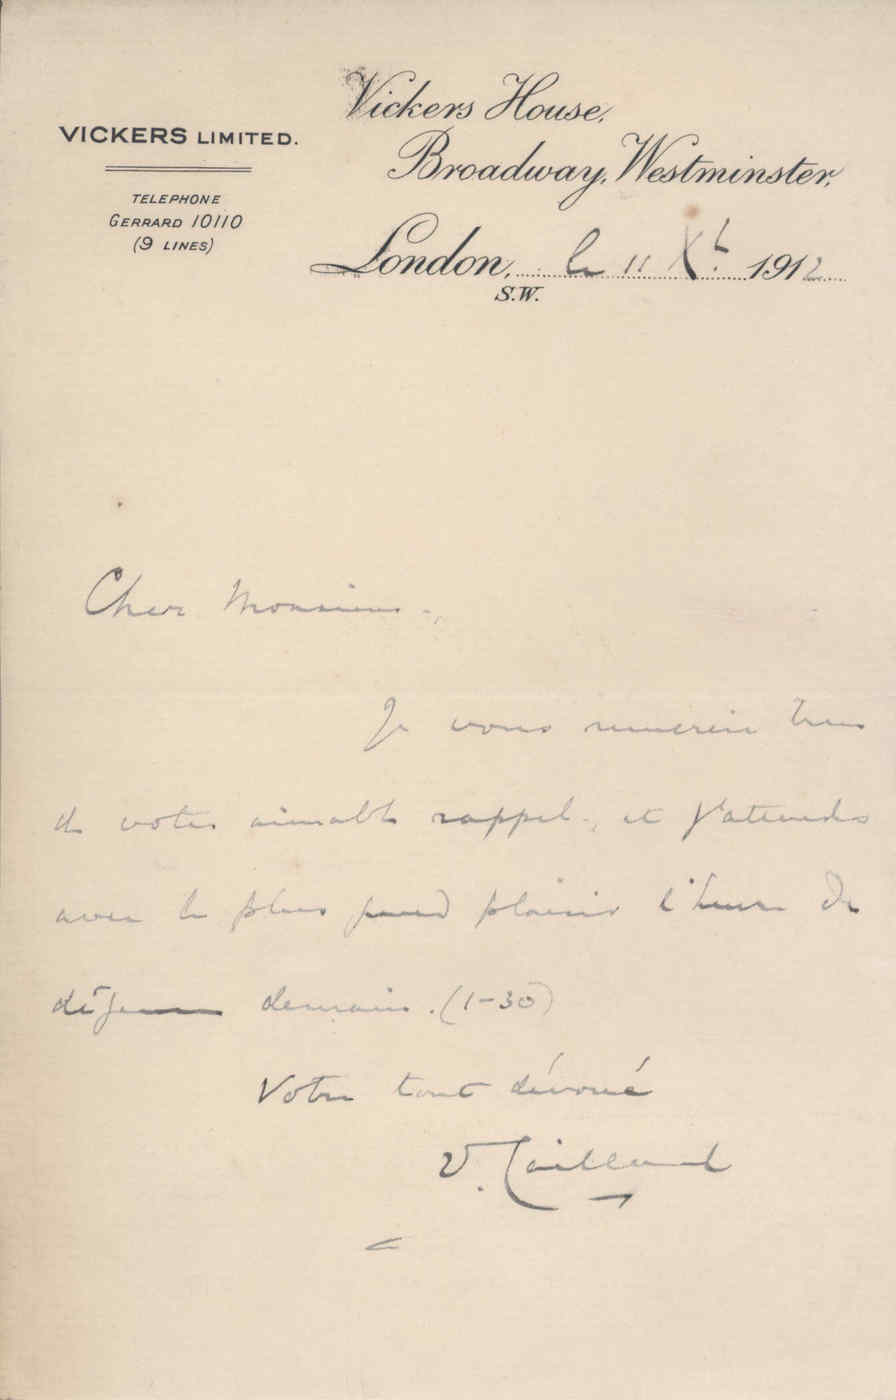 VICKERS LIMITED.
TELEPHONE
GERRARD 10110
(9 LINES)
Vickers House,
Broadway, Westminster,
London, le 11 Xb. 1912
S.W.
Cher Monsieur,
Je vous remercie bien
de votre aimable rappel, et j'attends
avec le plus grand plaisir l'heure de
déjeuner demain. (1-30)
Votre tout dévoué
V. Caillard